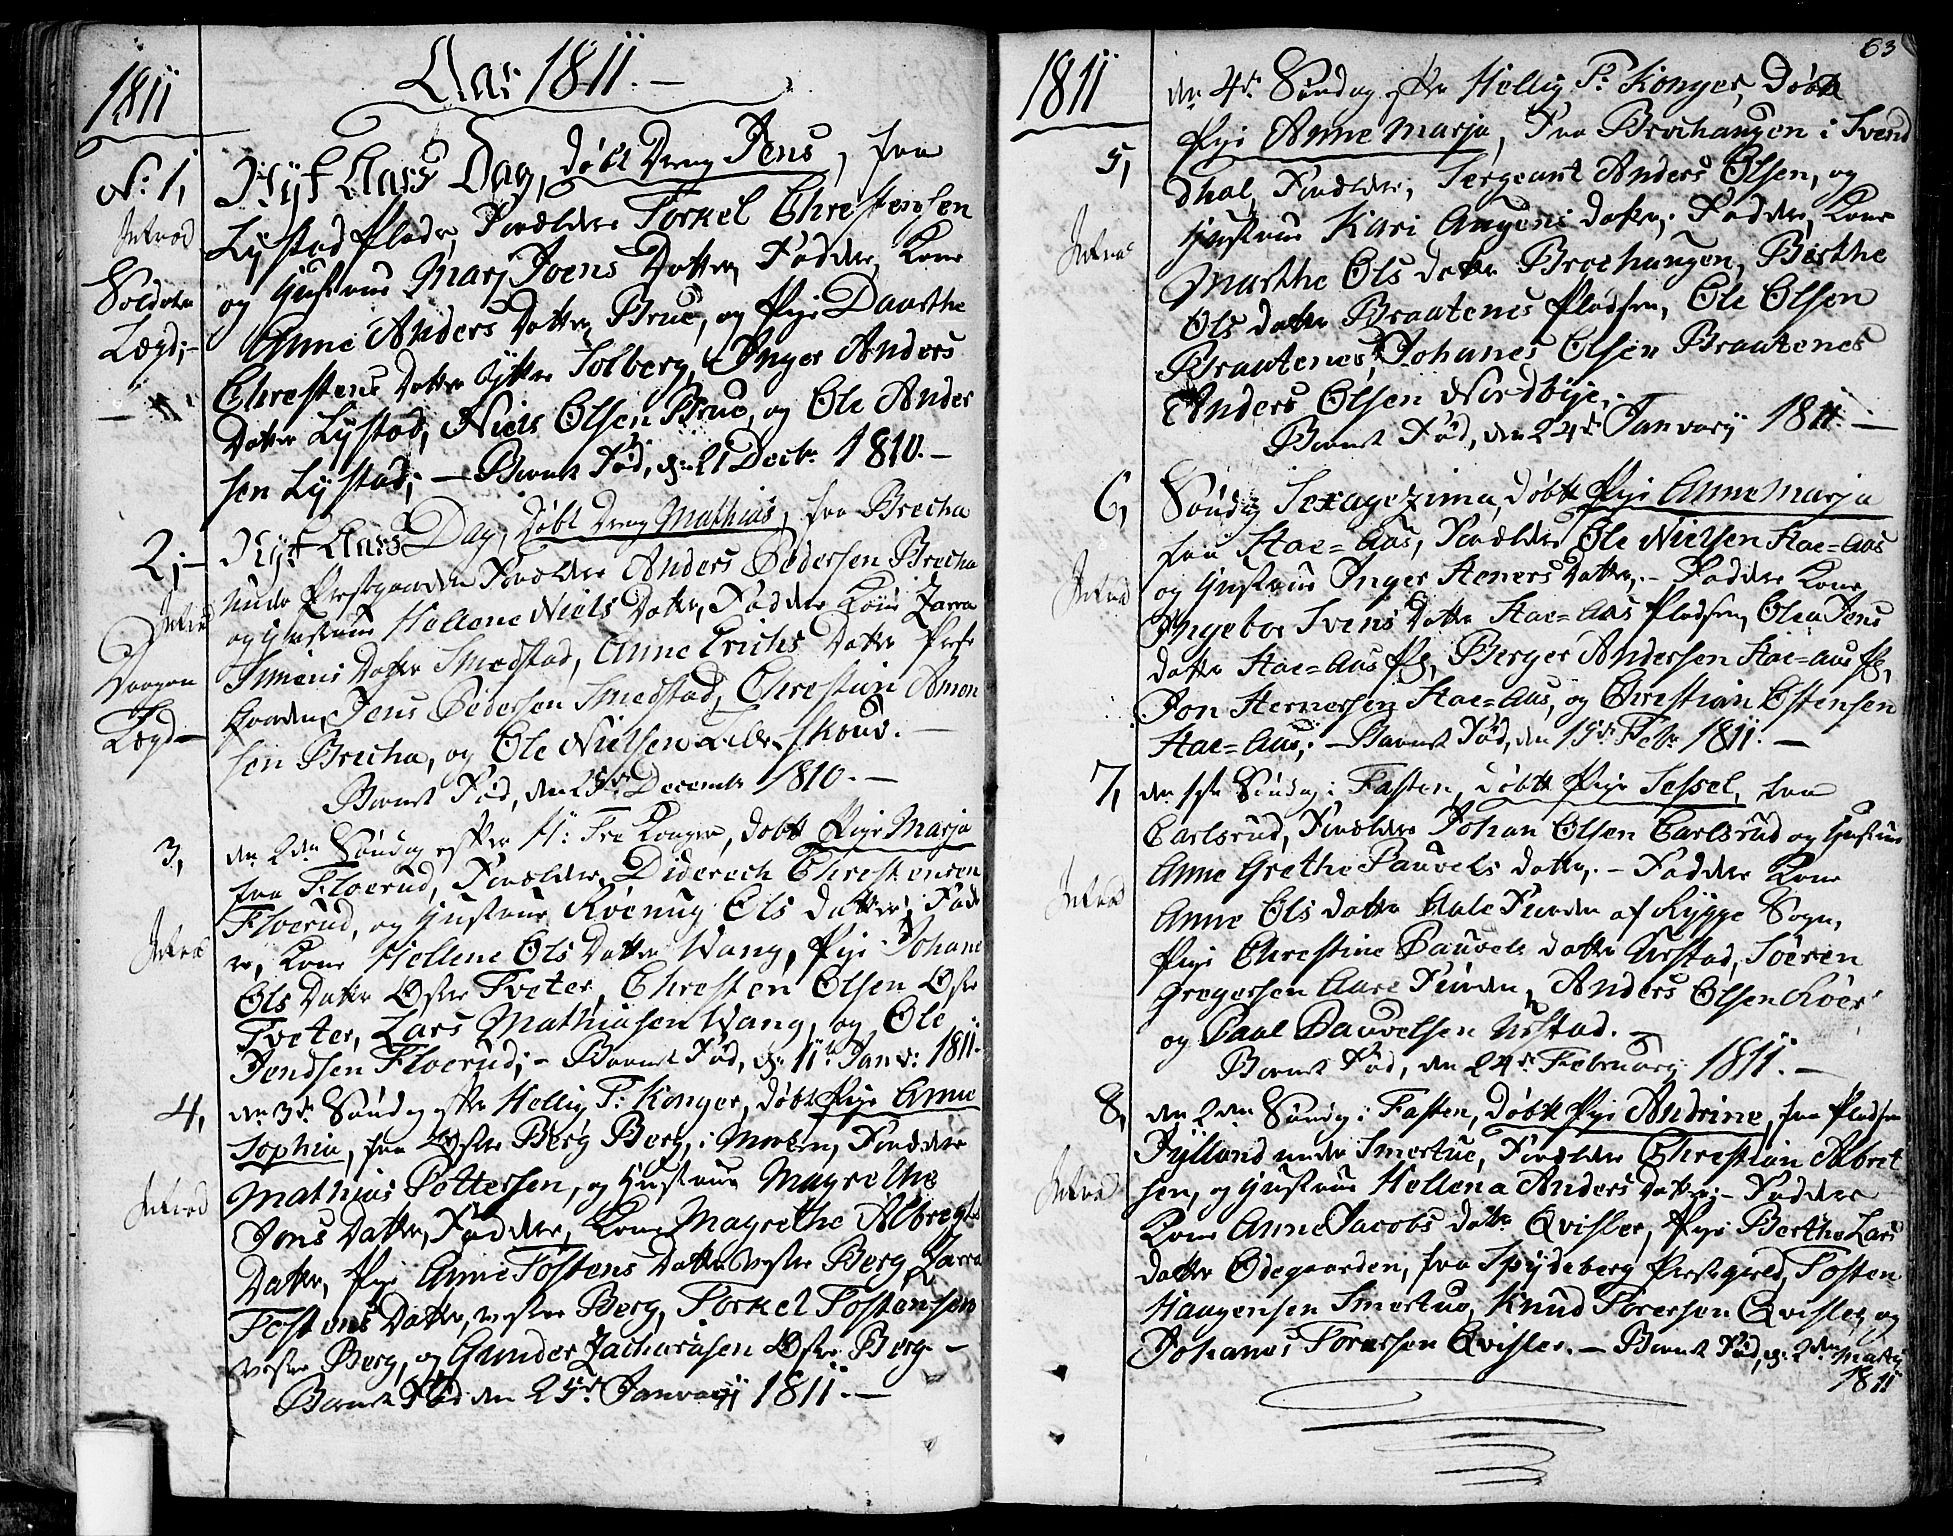 1811
Aar 1811. —
No: 1,
Nyt Aars Dag, døbt Dreng Jens, fra
Lystad Plads, Forældre Torkel Chrestensen
og Hustrue Marj Joens Datter, Faddere, Kone
Anne Anders Datter Brue, og Pige Daarthe
Chrestens Datter Solberg, Inger Anders
Datter Lystad, Niels Olsen Brue, og Ole Ander
sen Lystad; — Barnet Fød, d: 21 Decbr 1810. —
Soldater
Lægd; —
2, —
Nyt Aars Dag, døbt Dreng Mathias, fra Brecha
under Prestgaarden Forældre Anders Pedersen Brecha
og Hustrue Hellene Niels Datter, Faddere Kone Zarra
Simens Datter Smedstad, Anne Erichs Datter Præste
gaarden, Jens Pedersen Smedstad, Chrestian Amon
sen Brecha, og Ole Nielsen Skoud. —
Barnet Fød, den December 1810. —
Lægd —
3,
den 2den Søndag efter H: Tre Konger, døbt Pige Marja
fra Floerud, Forældre Diderech Chrestensen
Floerud, og Hustrue Rønnug Ols Datter; Fadde
re, Kone Hellene Ols Datter Wang, Pige Johane
Ols Datter Østre Tveter, Chresten Olsen Østre
Tveter, Lars Mathiasen Wang, og Ole
Jendsen Floerud; — Barnet Fød, d: 11te Janv: 1811.
4,
den 3die Søndag efter Hellig T: Konger, døbt Pige Anne
Sophia, fra Østre Berg Berg, i Forældre
Mathias Pettersen, og Hustrue Magrethe
Jons Datter, Faddere, Kone Magrethe Albregts
Datter, Pige Anne Tostens Datter vestre Berg, Zarra
Tostens Datter, vestre Berg, Torkel Tostensen
vestre Berg, og Gunder Zachariasen Østre Berg —
Barnet Fød den 25de Januarij 1811. —
1811
63
5,
den 4de Søndag efter Hellig T: Konger, Døbt
Pige Anne Marja, fra Brochaugen i Svend
dhal, Forældre, Sergeant Anders Olsen, og
Hustrue Kari Augens Datter; Faddere, Kone
Marthe Ols datter Brochaugen, Birthe
Ols datter Braatenes Pladsen, Ole Olsen
Braatenes, Johanes Olsen Braatenes
Anders Olsen Nordbye,
Barnet Fød, den 24de Januarij 1811. —
6,
Søndag Sexagezima, døbt Pige Anne Marja
fra Hae=Aas, Forældre Ole Nielsen Hae=Aas
og Hustrue Inger Heners Datter. — Faddere Kone
Ingebor Svens Datter Hae=Aas Pladsen, Olea Jens
datter Hae=Aas Pl, Berger Andersen Hae=Aas Pl,
Jon Hernersen Hae=Aas, og Chrestian Østensen
Hae=Aas; — Barnet Fød, den 15de Febr 1811. —
7,
den 1ste Søndag i Fasten, døbt Pige Sessel, fra
Carlsrud, Forældre Johan Olsen Carlsrud og Hustrue
Anne Grethe Pauvels datter. — Faddere Kone
Anne Ols datter Aale Funden af Rygge Sogn,
Pige Chrestine Pauvels datter Urstad, Soeren
Gregersen Aare Funden, Anders Olsen Roer
og Paul Pauvelsen Urstad. —
Barnet Fød, den 24de February 1811. —
8,
den 2den Søndag i Fasten, døbt Pige Andrine, fra Pladsen
Jylland under Smertue, Forældre Chrestian Albret
sen, og Hustrue Hellena Anders Datter; — Faddere
Kone Anne Jacobs datter Qvisler, Pige Berthe Lars
datter Ødegaarden, fra Spydeberg Præstegield, Tosten
Haagensen Smertue, Knud Torersen Qvisler, og
Johanes Torersen Qvisler. — Barnet Fød, d: 2den Marty
1811